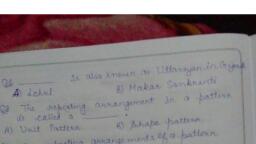 Q5 ______ is also known as Uttarayan in Gujarat
A) Lohri B) Makar Sankranti
The repeating arrangement in a pattern
is called a ______.
A) Unit Pattern B) Shape pattern
arrangements of a pattern